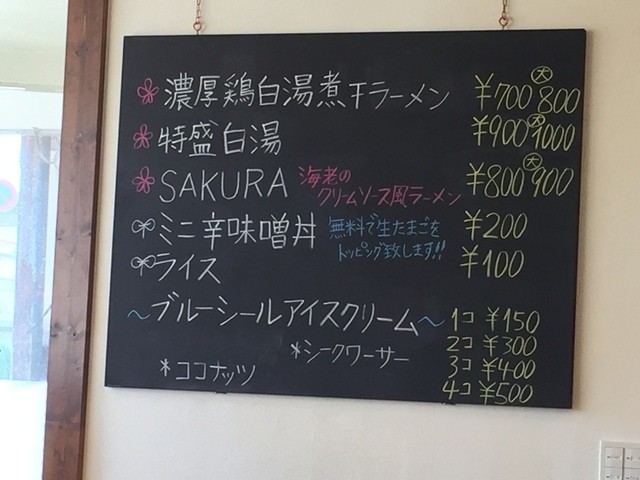 濃厚鶏白湯煮干ラーメン ¥700 大800
特盛白湯 ¥900 大1000
SAKURA 海老のクリームソース風ラーメン ¥800 大900
ミニ辛味噌丼 無料で生たまごをトッピング致します!! ¥200
ライス ¥100
～ブルーシールアイスクリーム～ 1コ ¥150
2コ ¥300
*シークワーサー 3コ ¥400
*ココナッツ 4コ ¥500